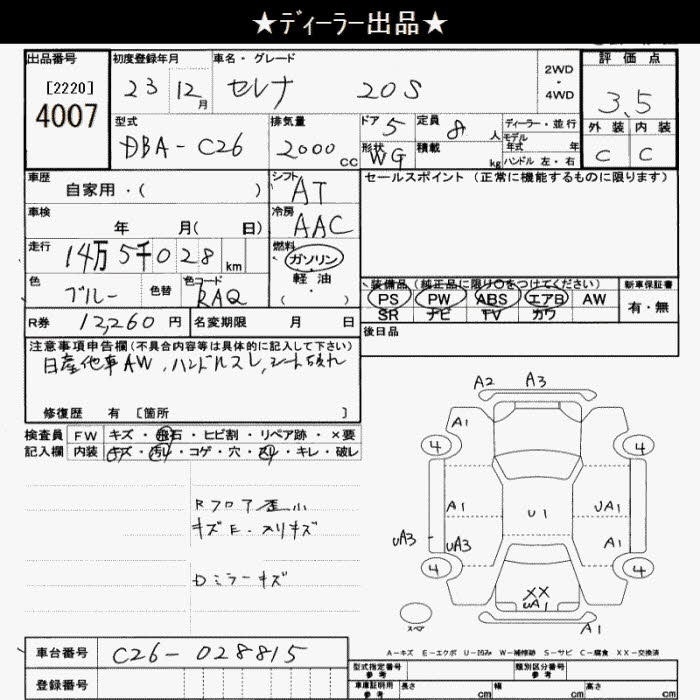 ★ディーラー出品★
出品番号
[2220]
4007
初度登録年月
23 12月
車名・グレード
セレナ 20S
2WD
・
4WD
評価点
3.5
外装 内装
C C
型式
DBA-C26
排気量
2000cc
ドア 5
形状 WG
定員 8人
積載 kg
ディーラー・並行
モデル
年式 年
ハンドル 左・右
車歴
自家用・( )
シフト
AT
セールスポイント(正常に機能するものに限ります)
車検
年 月( 日)
冷房
AAC
走行
14万5千028km
燃料
ガソリン
・
軽油
( ・ )
色
ブルー
色替
色コード
RAQ
装備品(純正品に限り○をつけてください)
PS PW ABS エアB AW
SR ナビ TV カワ
新車保証書
有・無
R券 12,260円
名変期限 月 日
後日品
注意事項申告欄(不具合内容等は具体的に記入して下さい)
日産他車AW,ハンドルスレ,シート破れ
修復歴 有 [箇所 ]
検査員
記入欄
FW キズ・飛石・ヒビ割・リペア跡・×要
内装 キズ・汚れ・コゲ・穴・スレ・キレ・破レ
Rフロア歪小
キズE.スリキズ
Dミラーキズ
A2 A3
A1
4 4
A1 U1 UA1
uA3 uA3 A1
4 4
XX
uA1
スペア
A1
A-キズ E-エクボ U-凹み W-補修跡 S-サビ C-腐食 XX-交換済
車台番号 C26-028815
登録番号
型式指定番号
参考
類別区分番号
参考
車庫証明用
参考
長さ cm
幅 cm
高さ cm